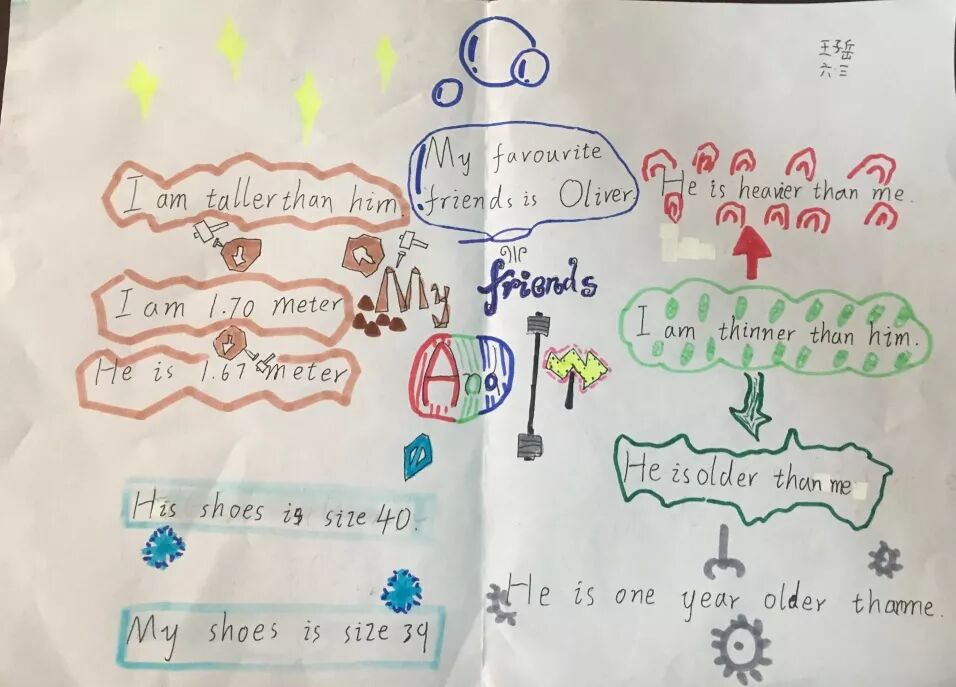 王子岳
六三
My favourite
friends is Oliver.
I am taller than him.
I am 1.70 meter
He is 1.67 meter
His shoes is size 40.
My shoes is size 39
My
friends
And
He is heavier than me.
I am thinner than him.
He is older than me
He is one year older than me.